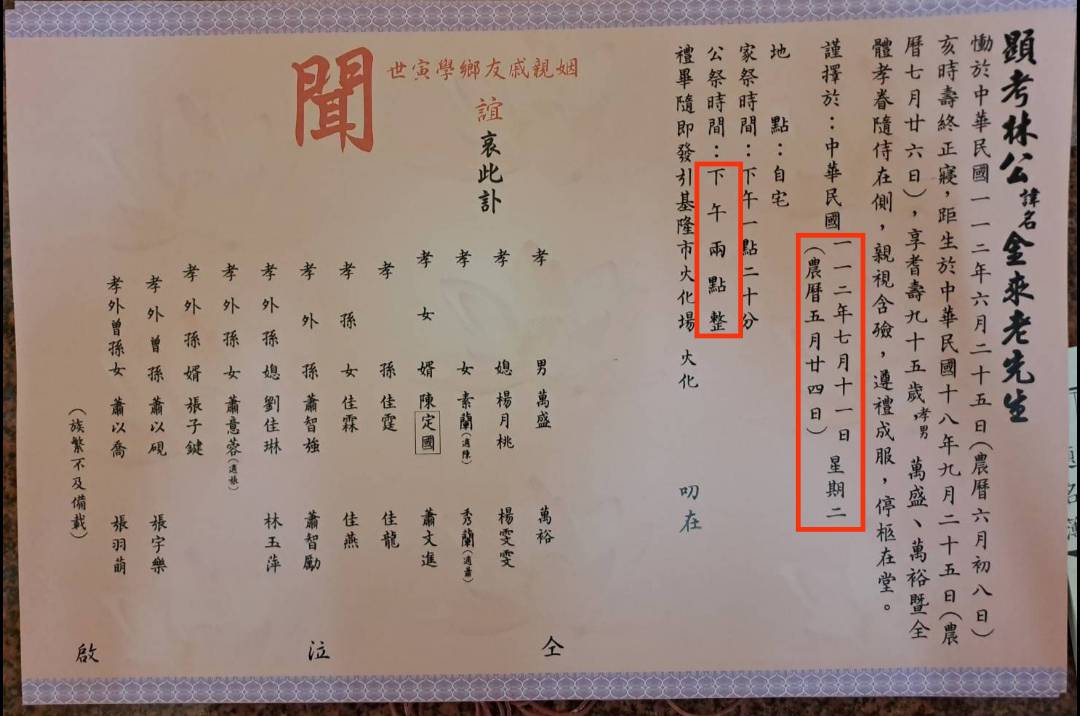 顯考林公諱名金來老先生
慟於中華民國一一二年六月二十五日(農曆六月初八日)
亥時壽終正寢,距生於中華民國十八年九月二十五日(農
曆七月廿六日),享耆壽九十五歲,孝男 萬盛、萬裕暨全
體孝眷隨侍在側,親視含殮,遵禮成服,停柩在堂。
謹擇於:中華民國一一二年七月十一日 星期二
(農曆五月廿四日)
地 點:自宅
家祭時間:下午一點二十分
公祭時間:下午兩點整
禮畢隨即發引基隆市火化場 火化
叨在
姻親戚友鄉學寅世
誼
哀此訃
聞
孝 男 萬盛 萬裕
孝 媳 楊月桃 楊雯雯
孝 女 素蘭(適陳) 秀蘭(適蕭)
孝女 婿 陳定國 蕭文進
孝 孫 佳霆 佳龍
孝孫 女 佳霖 佳燕
孝外 孫 蕭智強 蕭智勵
孝外孫 媳 劉佳琳 林玉萍
孝外孫 女 蕭意蓉(適張)
孝外孫 婿 張子鍵
孝外曾孫 蕭以硯 張宇樂
孝外曾孫女 蕭以喬 張羽萌
(族繁不及備載)
仝
泣
啟